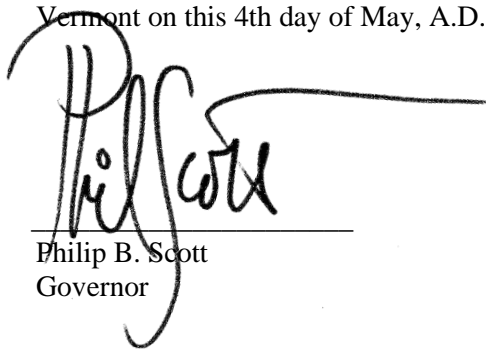 Vermont on this 4th day of May, A.D.
Phil Scott
Philip B. Scott
Governor